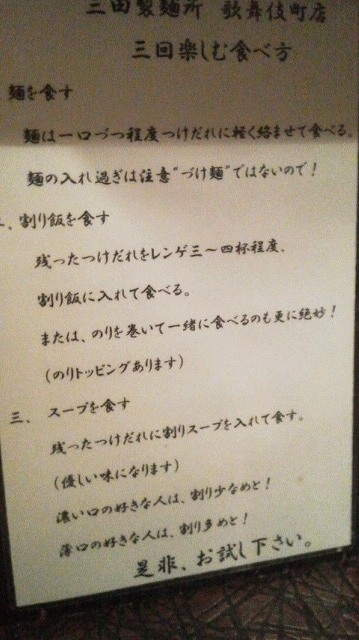 三田製麺所 歌舞伎町店
三回楽しむ食べ方
麺を食す
麺は一口づつ程度つけだれに軽く絡ませて食べる。
麺の入れ過ぎは注意“づけ麺”ではないので！
、割り飯を食す
残ったつけだれをレンゲ三～四杯程度、
割り飯に入れて食べる。
または、のりを巻いて一緒に食べるのも更に絶妙！
（のりトッピングあります）
三、 スープを食す
残ったつけだれに割りスープを入れて食す。
（優しい味になります）
濃い口の好きな人は、割り少なめと！
薄口の好きな人は、割り多めと！
是非、お試し下さい。